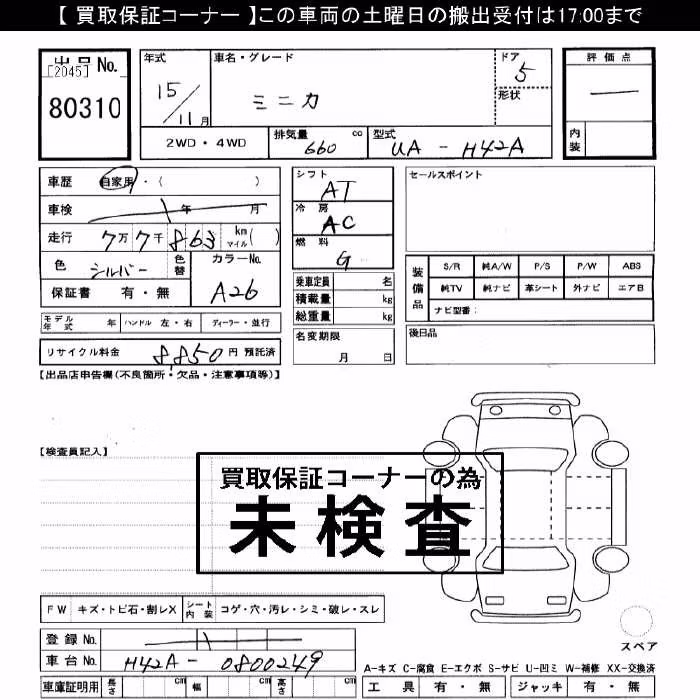 【 買取保証コーナー 】この車両の土曜日の搬出受付は17:00まで
出品 No.
[2045]
80310
年式
15/11月
車名・グレード
ミニカ
ドア
5
形状
評価点
一
内装
2WD・4WD
排気量 660 cc
型式 UA - H42A
車歴 自家用・( )
車検 年 月
走行 7万7千863 km マイル( )
色 シルバー 色替
カラーNo. A26
保証書 有・無
シフト AT
冷房 AC
燃料 G
乗車定員 名
積載量 kg
総重量 kg
名変期限 月 日
セールスポイント
装備品
S/R 純A/W P/S P/W ABS
純TV 純ナビ 革シート 外ナビ エアB
ナビ型番:
後日品
モデル年式 年 ハンドル 左・右 ディーラー・並行
リサイクル料金 8,850 円 預託済
【出品店申告欄(不良箇所・欠品・注意事項等)】
【検査員記入】
買取保証コーナーの為
未検査
FW キズ・トビ石・割レX シート内装 コゲ・穴・汚レ・シミ・破レ・スレ
登録 No.
車台 No. H42A - 0800249
車庫証明用 長さ cm 幅 cm 高さ cm
スペア
A-キズ C-腐食 E-エクボ S-サビ U-凹ミ W-補修 XX-交換済
工具 有・無 ジャッキ 有・無